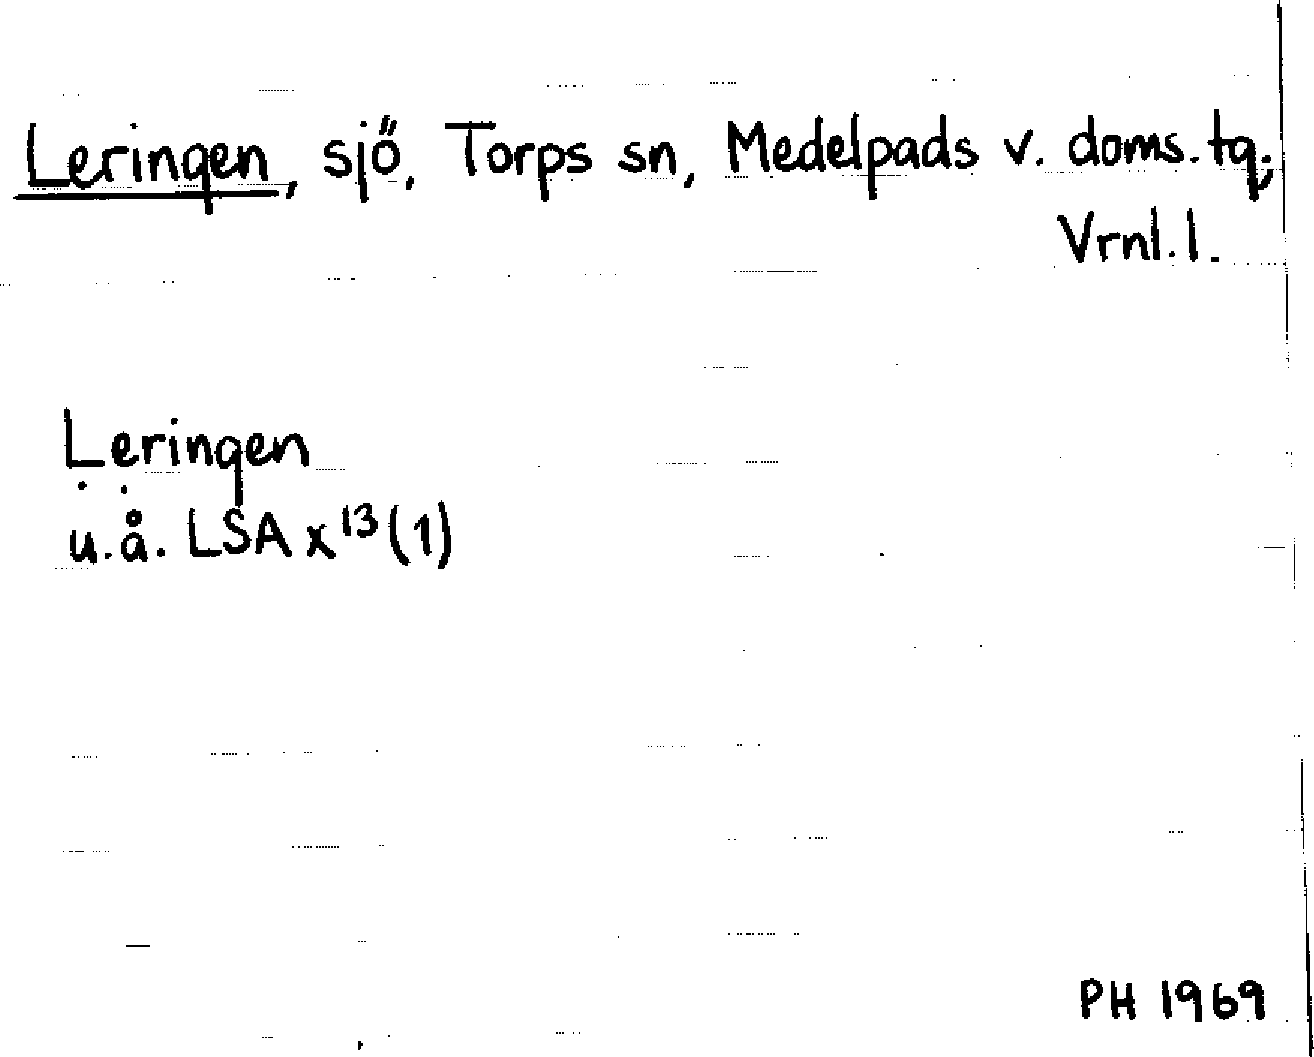 Leringen, sjö, Torps sn, Medelpads v. doms. tg;
Vrnl. l.
Leringen
u.å. LSA x¹³(1)
PH 1969